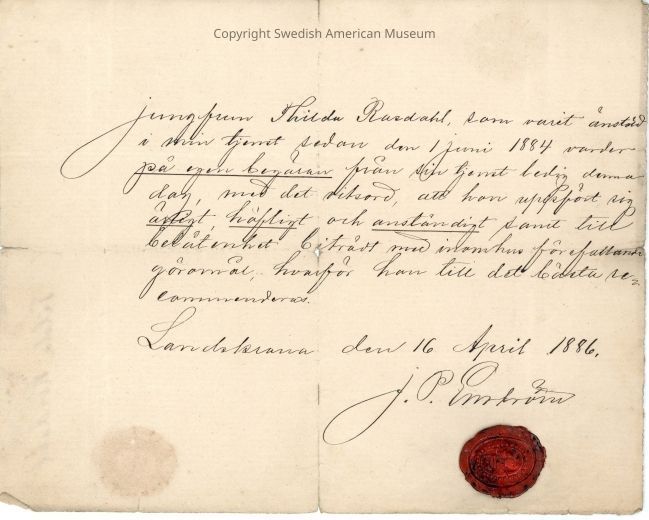 Copyright Swedish American Museum
Jungfrun Thilda Rasdahl, som varit anstäld
i min tjenst sedan den 1 juni 1884 varder
på egen begäran från sin tjenst ledig denna
dag, med det vitsord, att hon uppfört sig
ärligt, höfligt och anständigt samt till
belåtenhet biträdt med inomhus förefallande
göromål, hvarför hon till det bästa re=
commenderas.
Landskrona den 16 April 1886.
J. P. Enström